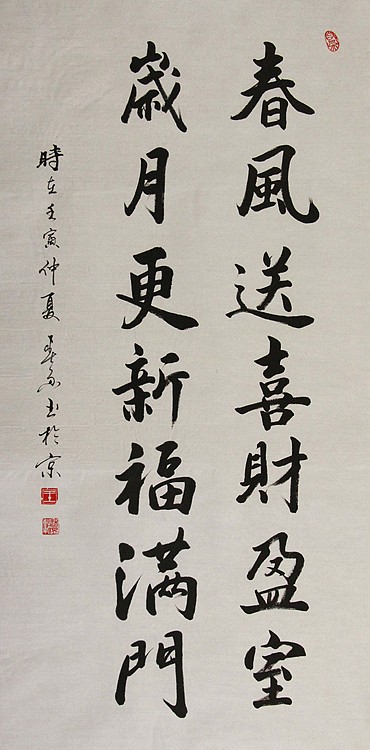 春風送喜財盈室
歲月更新福滿門
時在壬寅仲夏 書於京